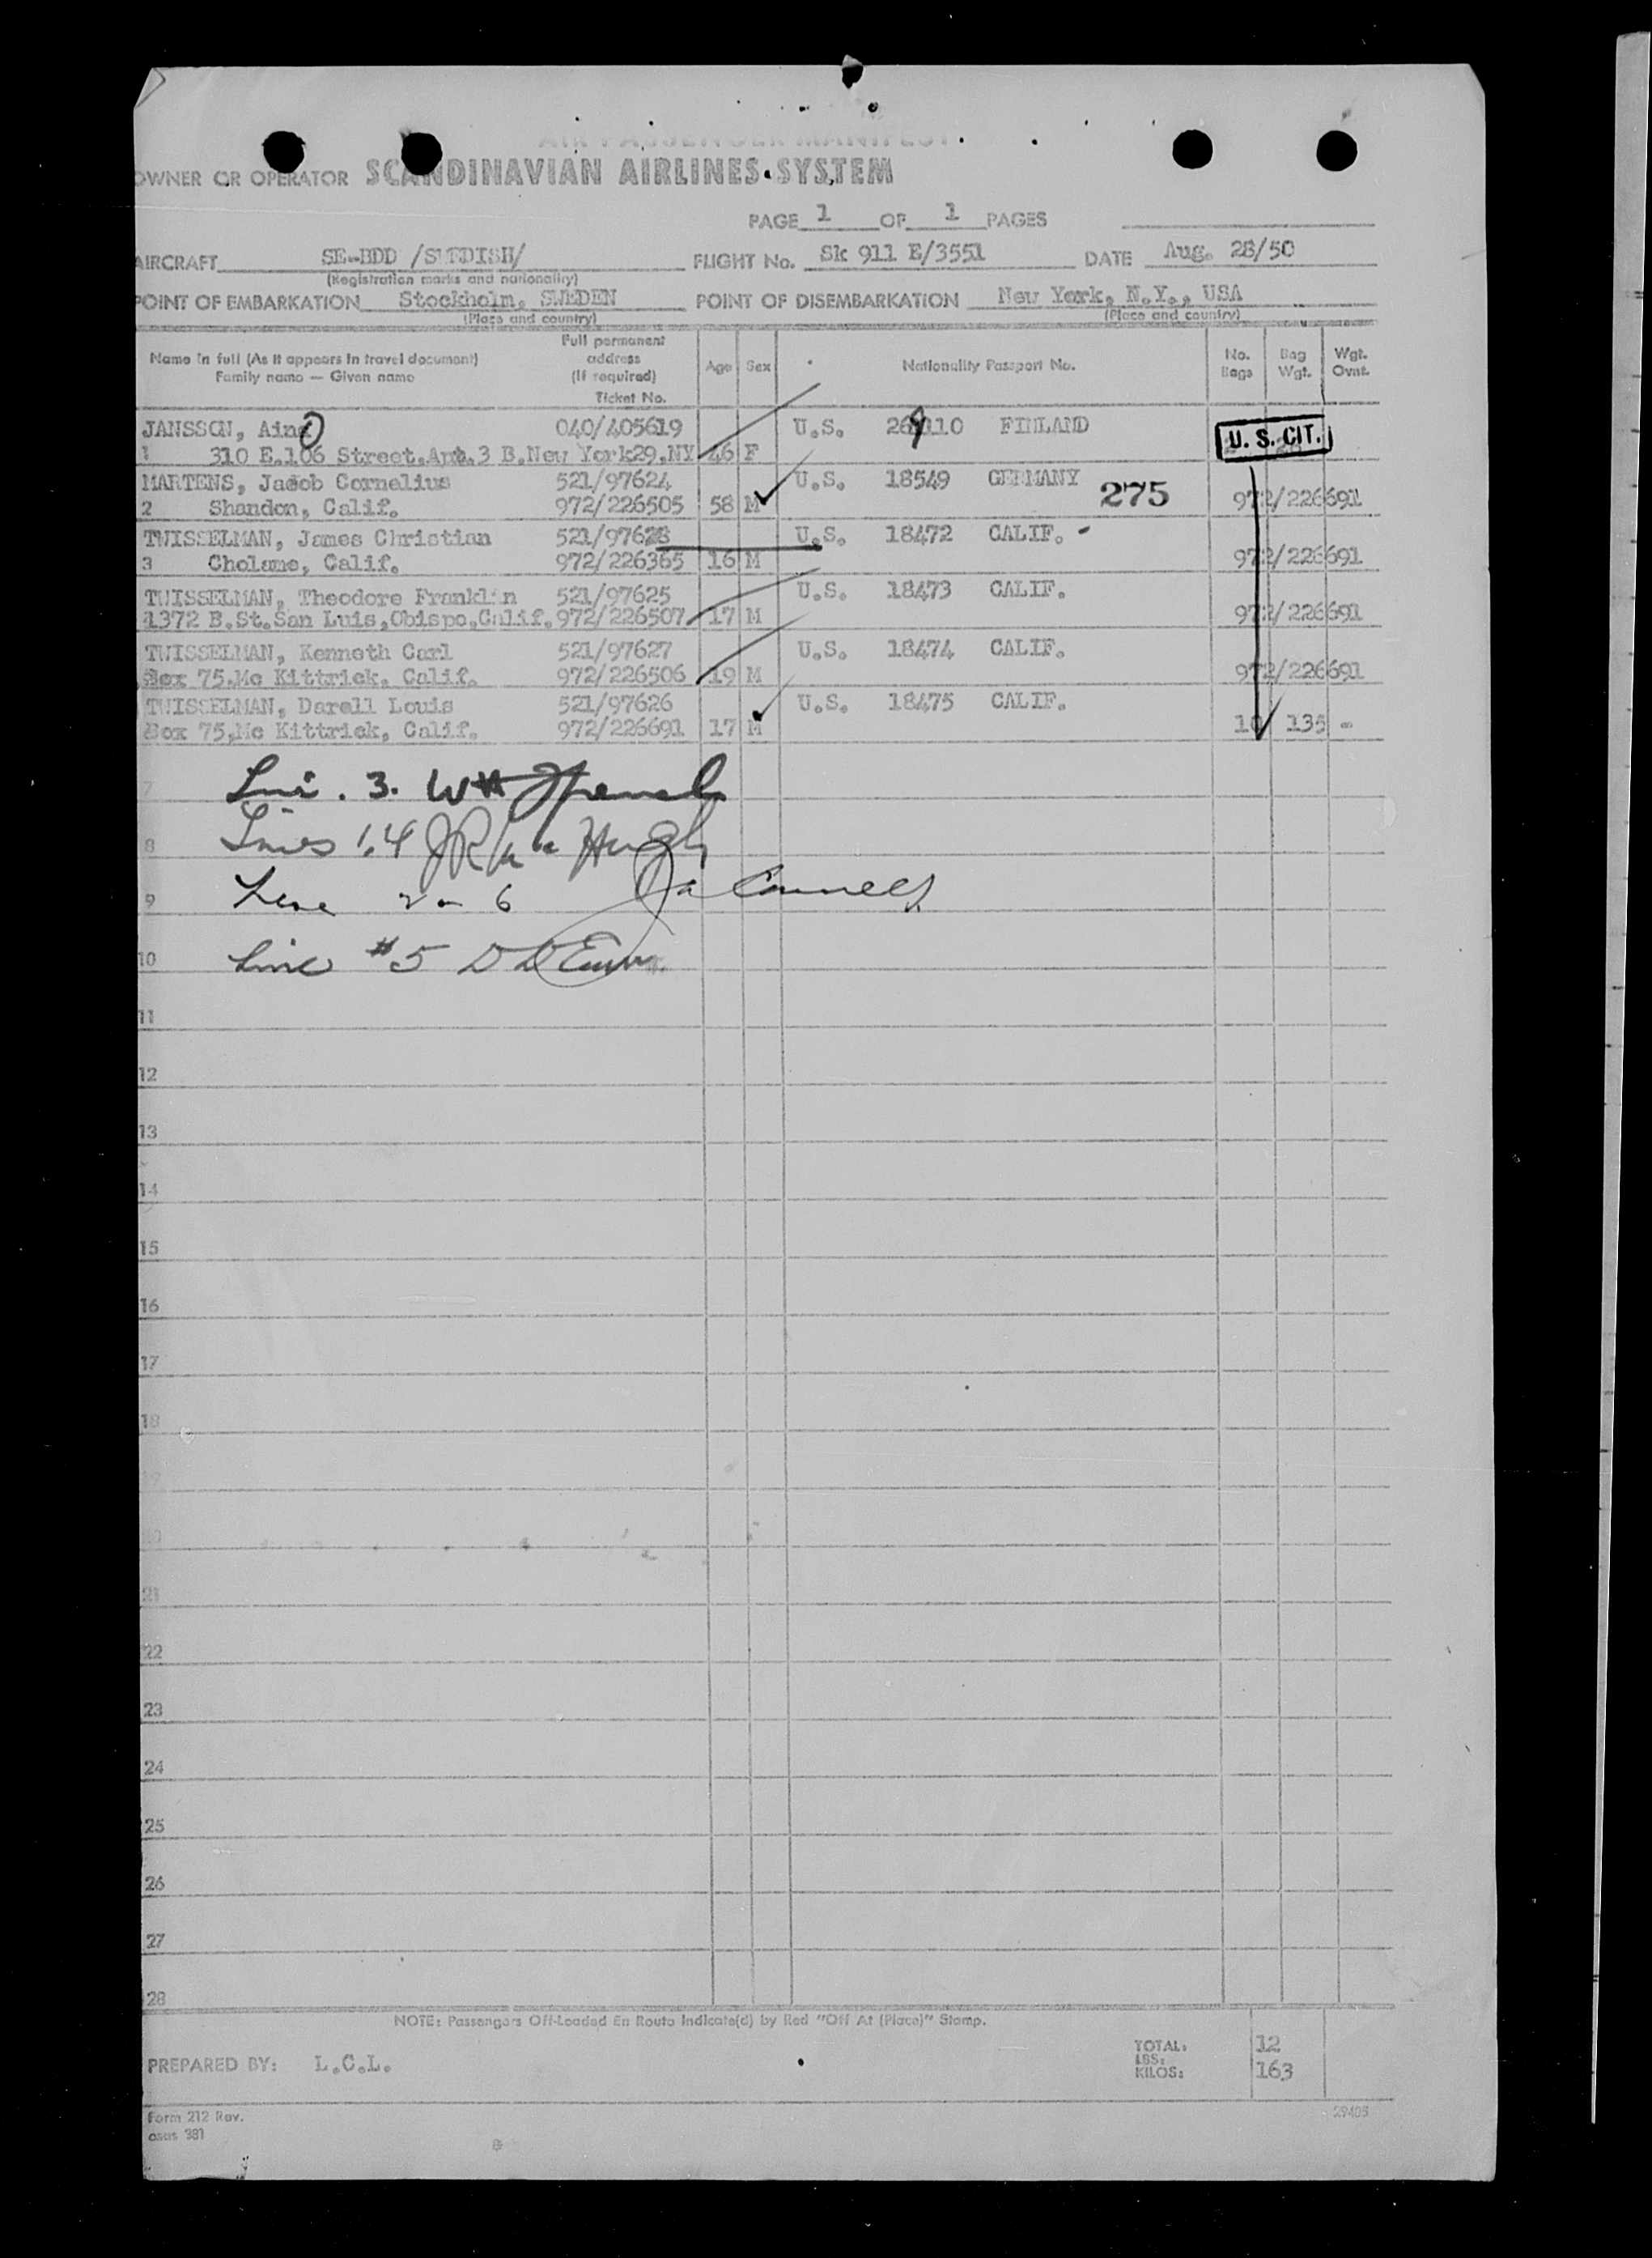 AIR PASSENGER MANIFEST
OWNER OR OPERATOR SCANDINAVIAN AIRLINES SYSTEM
PAGE 1 OF 1 PAGES
AIRCRAFT SE-BDD /SWEDISH/ FLIGHT No. Sk 911 E/3551 DATE Aug. 28/50
(Registration marks and nationality)
POINT OF EMBARKATION Stockholm, SWEDEN POINT OF DISEMBARKATION New York, N.Y., USA
(Place and country) (Place and country)
Name in full (As it appears in travel document) Family name — Given name Full permanent address (If required) Ticket No. Age Sex Nationality Passport No. No. Bags Bag Wgt. Wgt. Ovnt.
JANSSON, Aino 040/405619 U.S. 269110 FINLAND U. S. CIT.
1 310 E.106 Street.Apt.3 B.New York29,NY 46 F
MARTENS, Jacob Cornelius 521/97624 U.S. 18549 GERMANY 275
2 Shandon, Calif. 972/226505 58 M 972/226691
TWISSELMAN, James Christian 521/97628 U.S. 18472 CALIF. -
3 Cholame, Calif. 972/226365 16 M 972/226691
TWISSELMAN, Theodore Franklin 521/97625 U.S. 18473 CALIF.
1372 B.St.San Luis,Obispo,Calif. 972/226507 17 M 972/226691
TWISSELMAN, Kenneth Carl 521/97627 U.S. 18474 CALIF.
Box 75,Mc Kittrick, Calif. 972/226506 19 M 972/226691
TWISSELMAN, Darell Louis 521/97626 U.S. 18475 CALIF.
Box 75,Mc Kittrick, Calif. 972/226691 17 M 10 135 -
7 3.
8 Lines 1,4
9 Line 2 - 6
10 Line #5
11
12
13
14
15
16
17
18
19
20
21
22
23
24
25
26
27
28
NOTE: Passengers Off-Loaded En Route Indicate(d) by Red "Off At (Place)" Stamp.
PREPARED BY: L.C.L. TOTAL: 12
LBS:
KILOS: 163
Form 212 Rev. 29405
osus 381